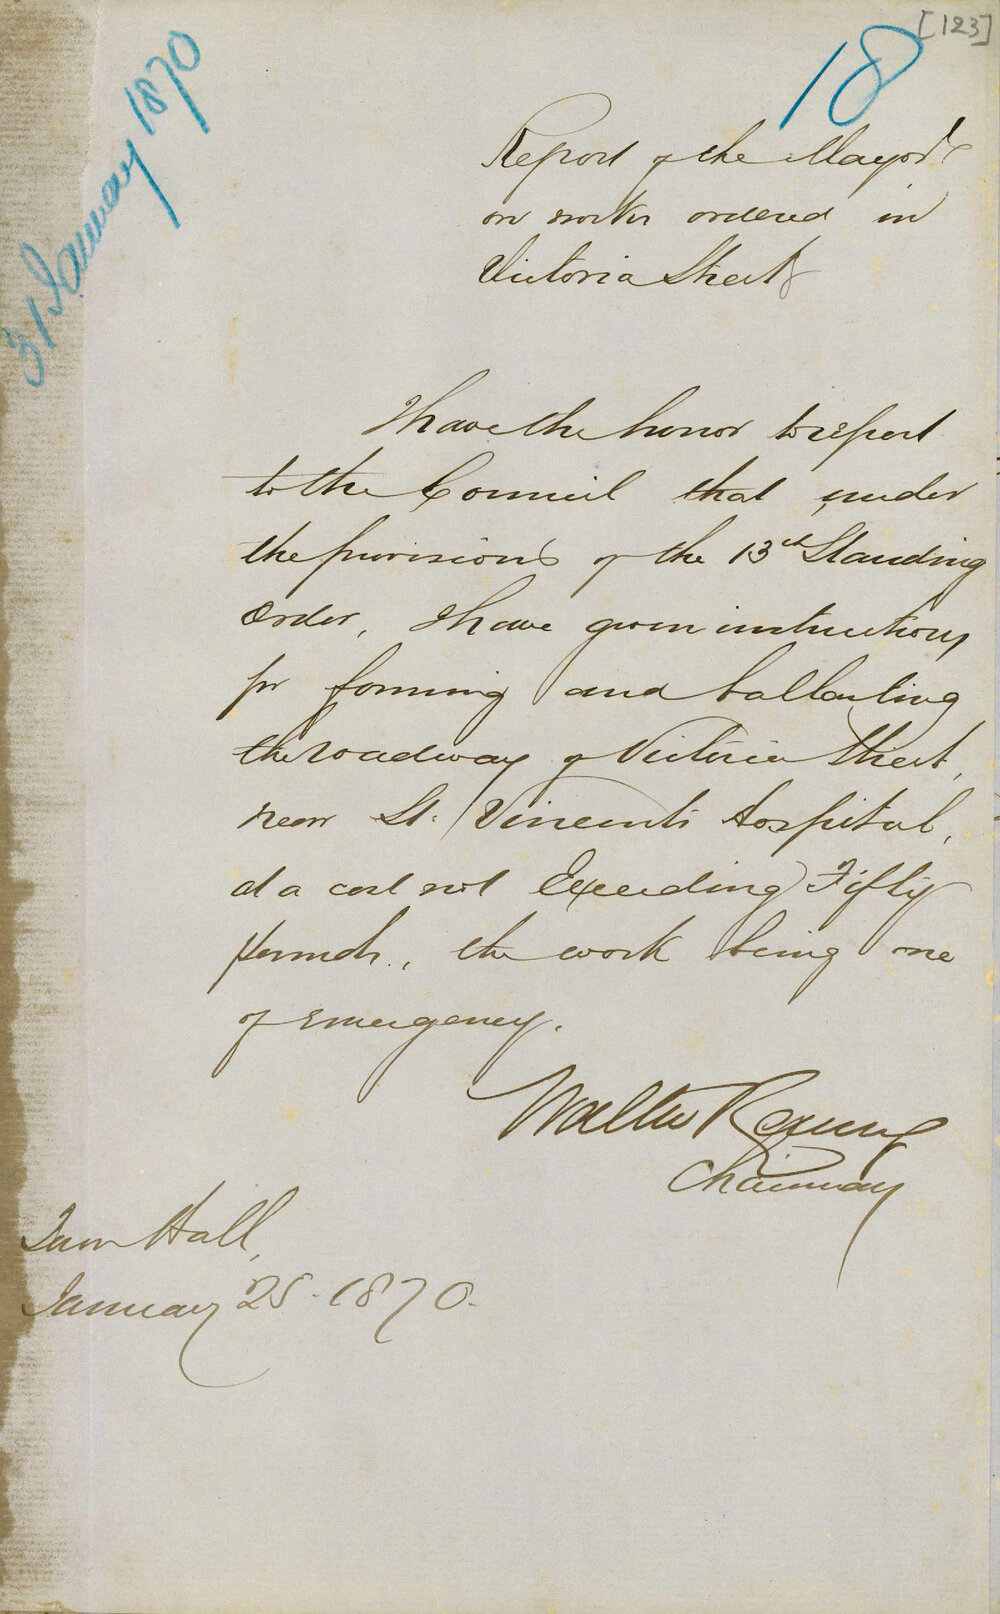 [123]
18
31 January 1870
Report of the Mayor
on works ordered in
Victoria Street
I have the honor to report
to the Council that under
the provisions of the 13th Standing
Order, I have given instructions
for forming and ballasting
the roadway of Victoria Street,
near St. Vincent's Hospital,
at a cost not Exceeding Fifty
pounds, the work being one
of emergency.
Walter Renny
Chairman
Town Hall,
January 28. 1870.